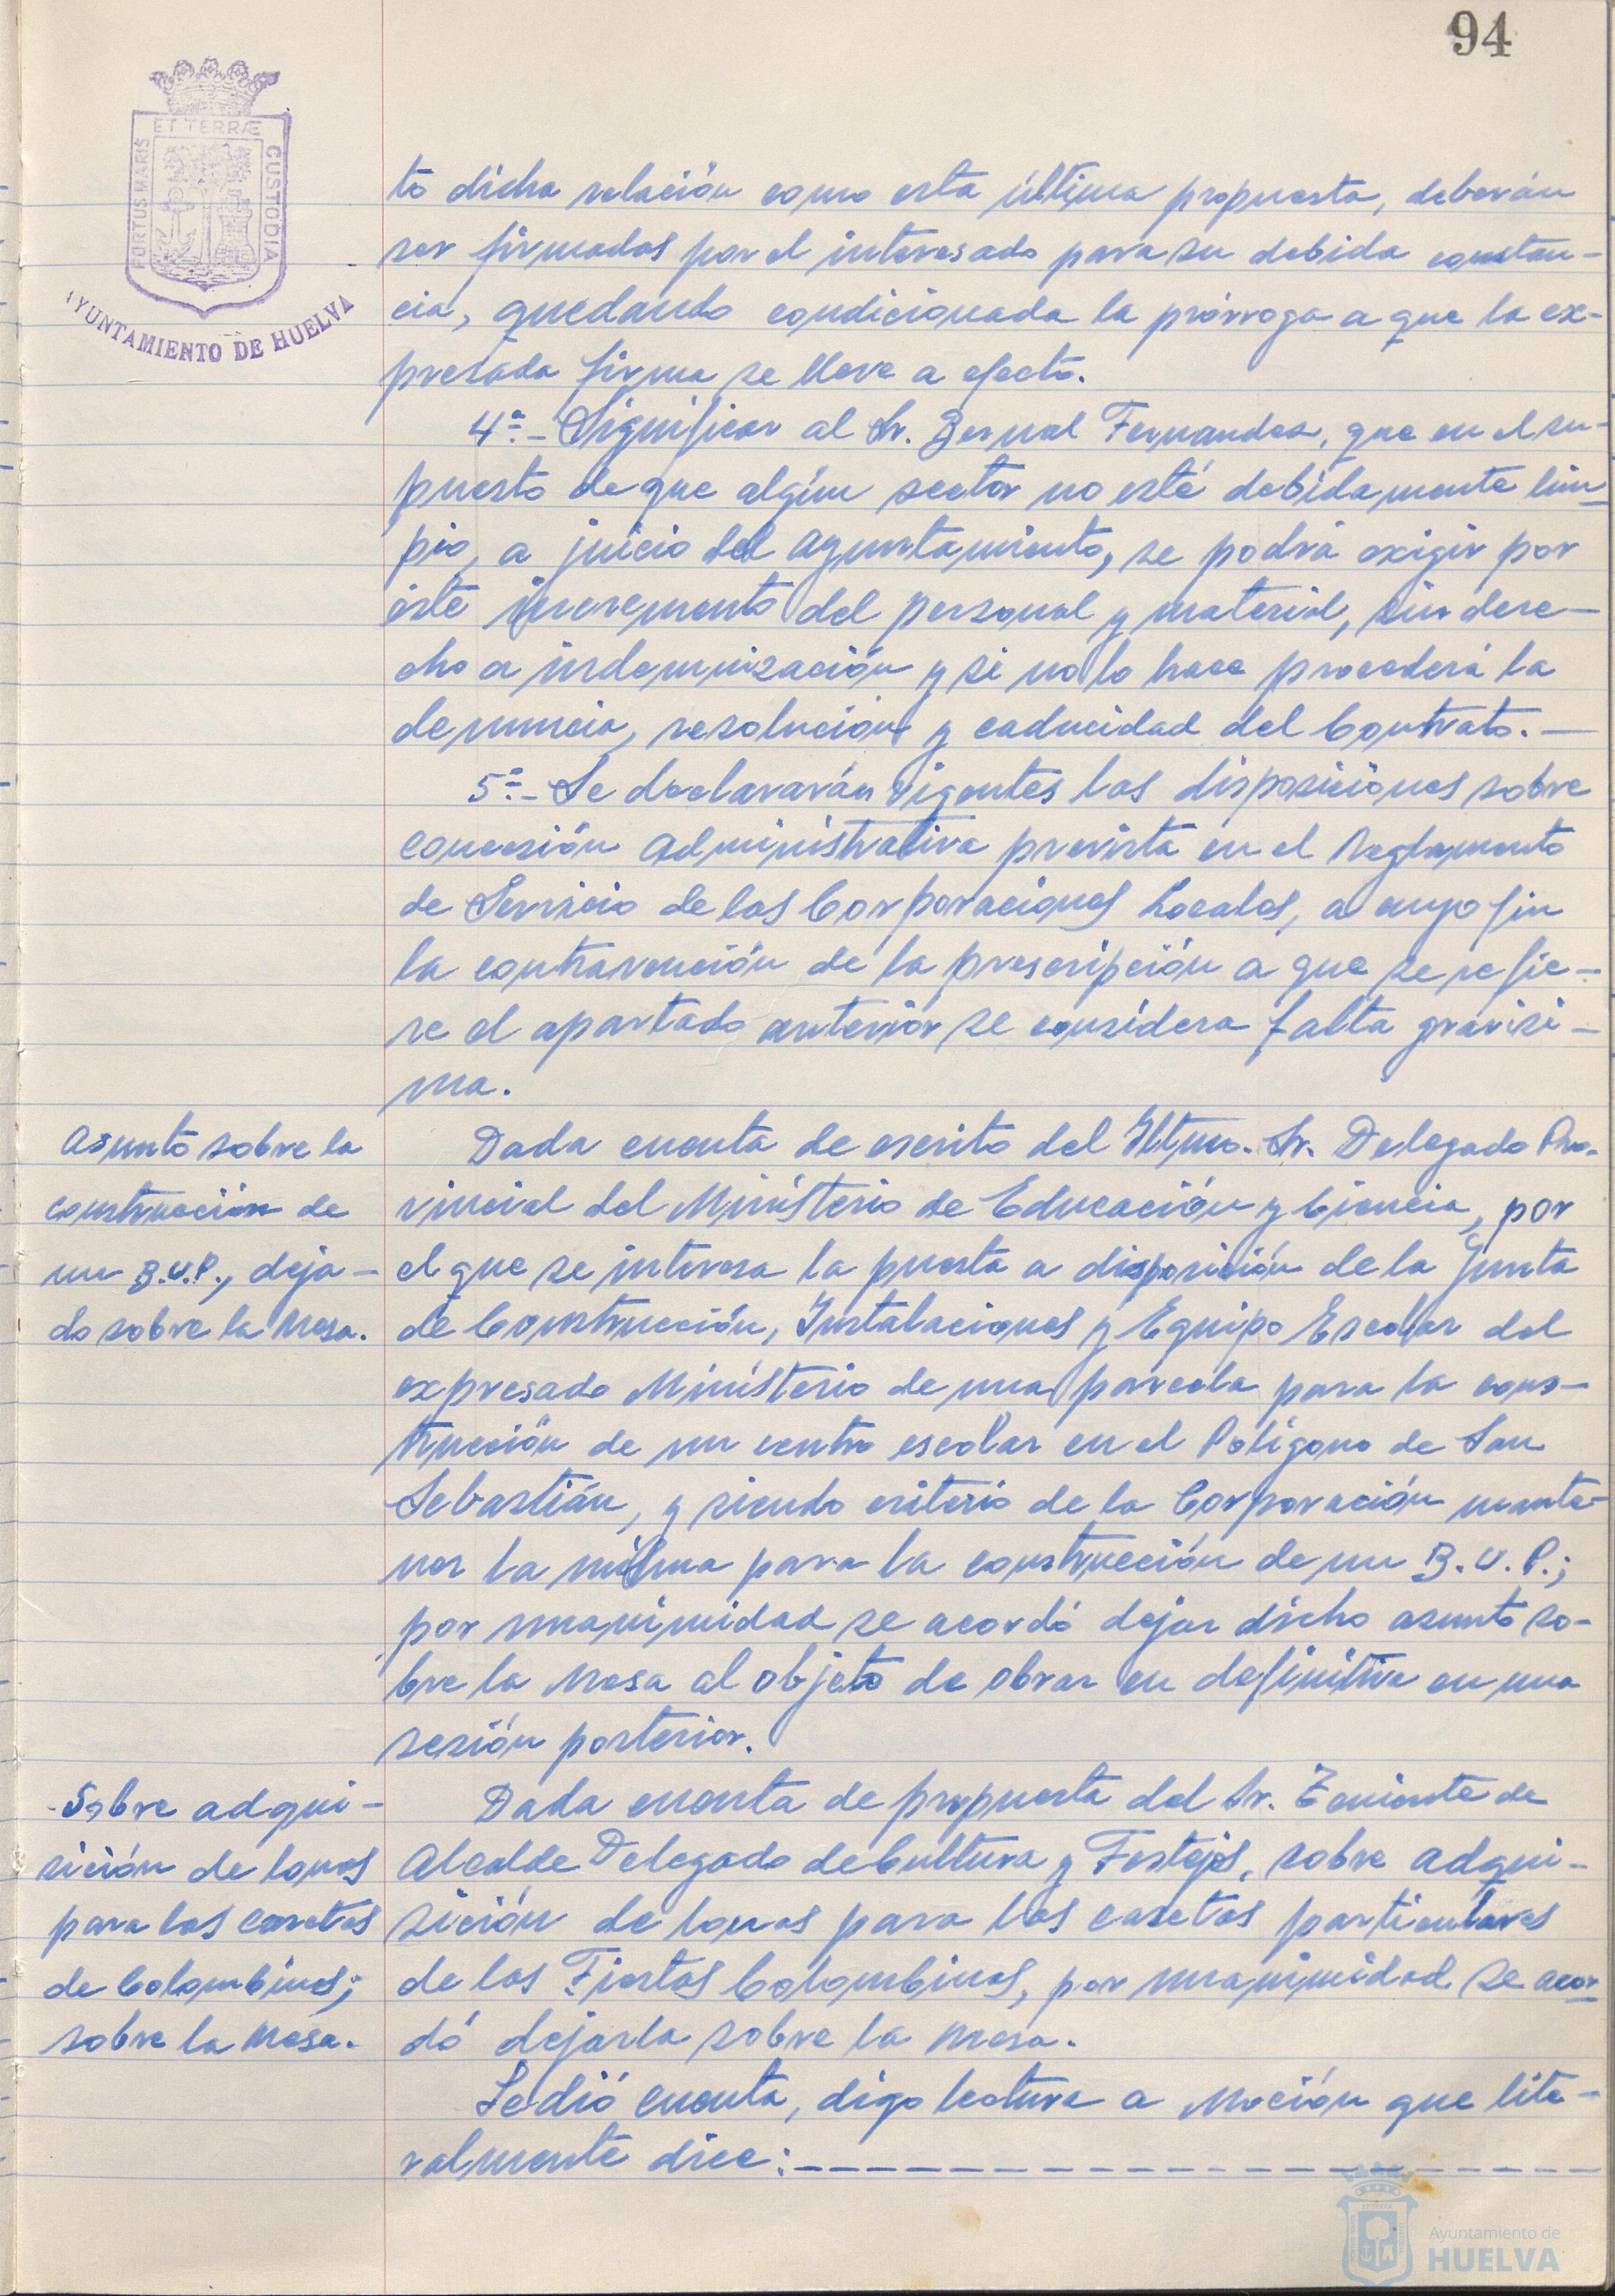 94
ET TERRÆ
PORTUS MARIS
CUSTODIA
AYUNTAMIENTO DE HUELVA
to dicha relación como esta última propuesta, deberán
ser firmadas por el interesado para su debida constan-
cia, quedando condicionada la prórroga a que la ex-
presada firma se lleve a efecto.
4ª.- Significar al Sr. Bernal Fernandez, que en el su-
puesto de que algún sector no esté debidamente lim-
pio, a juicio del Ayuntamiento, se podrá exigir por
éste incremento del personal y material, sin dere-
cho a indemnización y si no lo hace procederá la
denuncia, resolución y caducidad del Contrato.-
5ª.- Se declararán vigentes las disposiciones sobre
concesión administrativa prevista en el Reglamento
de Servicio de las Corporaciones Locales, a cuyo fin
la contravención de la prescripción a que se refie-
re el apartado anterior se considera falta gravísi-
ma.
Asunto sobre la
construcción de
un B.U.P., deja-
do sobre la Mesa.
Dada cuenta de escrito del Iltmo. Sr. Delegado Pro-
vincial del Ministerio de Educación y Ciencia, por
el que se interesa la puesta a disposición de la Junta
de Construcción, Instalaciones y Equipo Escolar del
expresado Ministerio de una parcela para la cons-
trucción de un centro escolar en el Polígono de San
Sebastián, y siendo criterio de la Corporación mante-
ner la misma para la construcción de un B.U.P.;
por unanimidad se acordó dejar dicho asunto so-
bre la Mesa al objeto de obrar en definitiva en una
sesión posterior.
Sobre adqui-
sición de lonas
para las casetas
de Colombinas;
sobre la Mesa.
Dada cuenta de propuesta del Sr. Teniente de
Alcalde Delegado de Cultura y Festejos, sobre adqui-
sición de lonas para las casetas particulares
de las Fiestas Colombinas, por unanimidad se acor-
dó dejarla sobre la Mesa.
Se dió cuenta, digo lectura a Moción que lite-
ralmente dice:
Ayuntamiento de
HUELVA